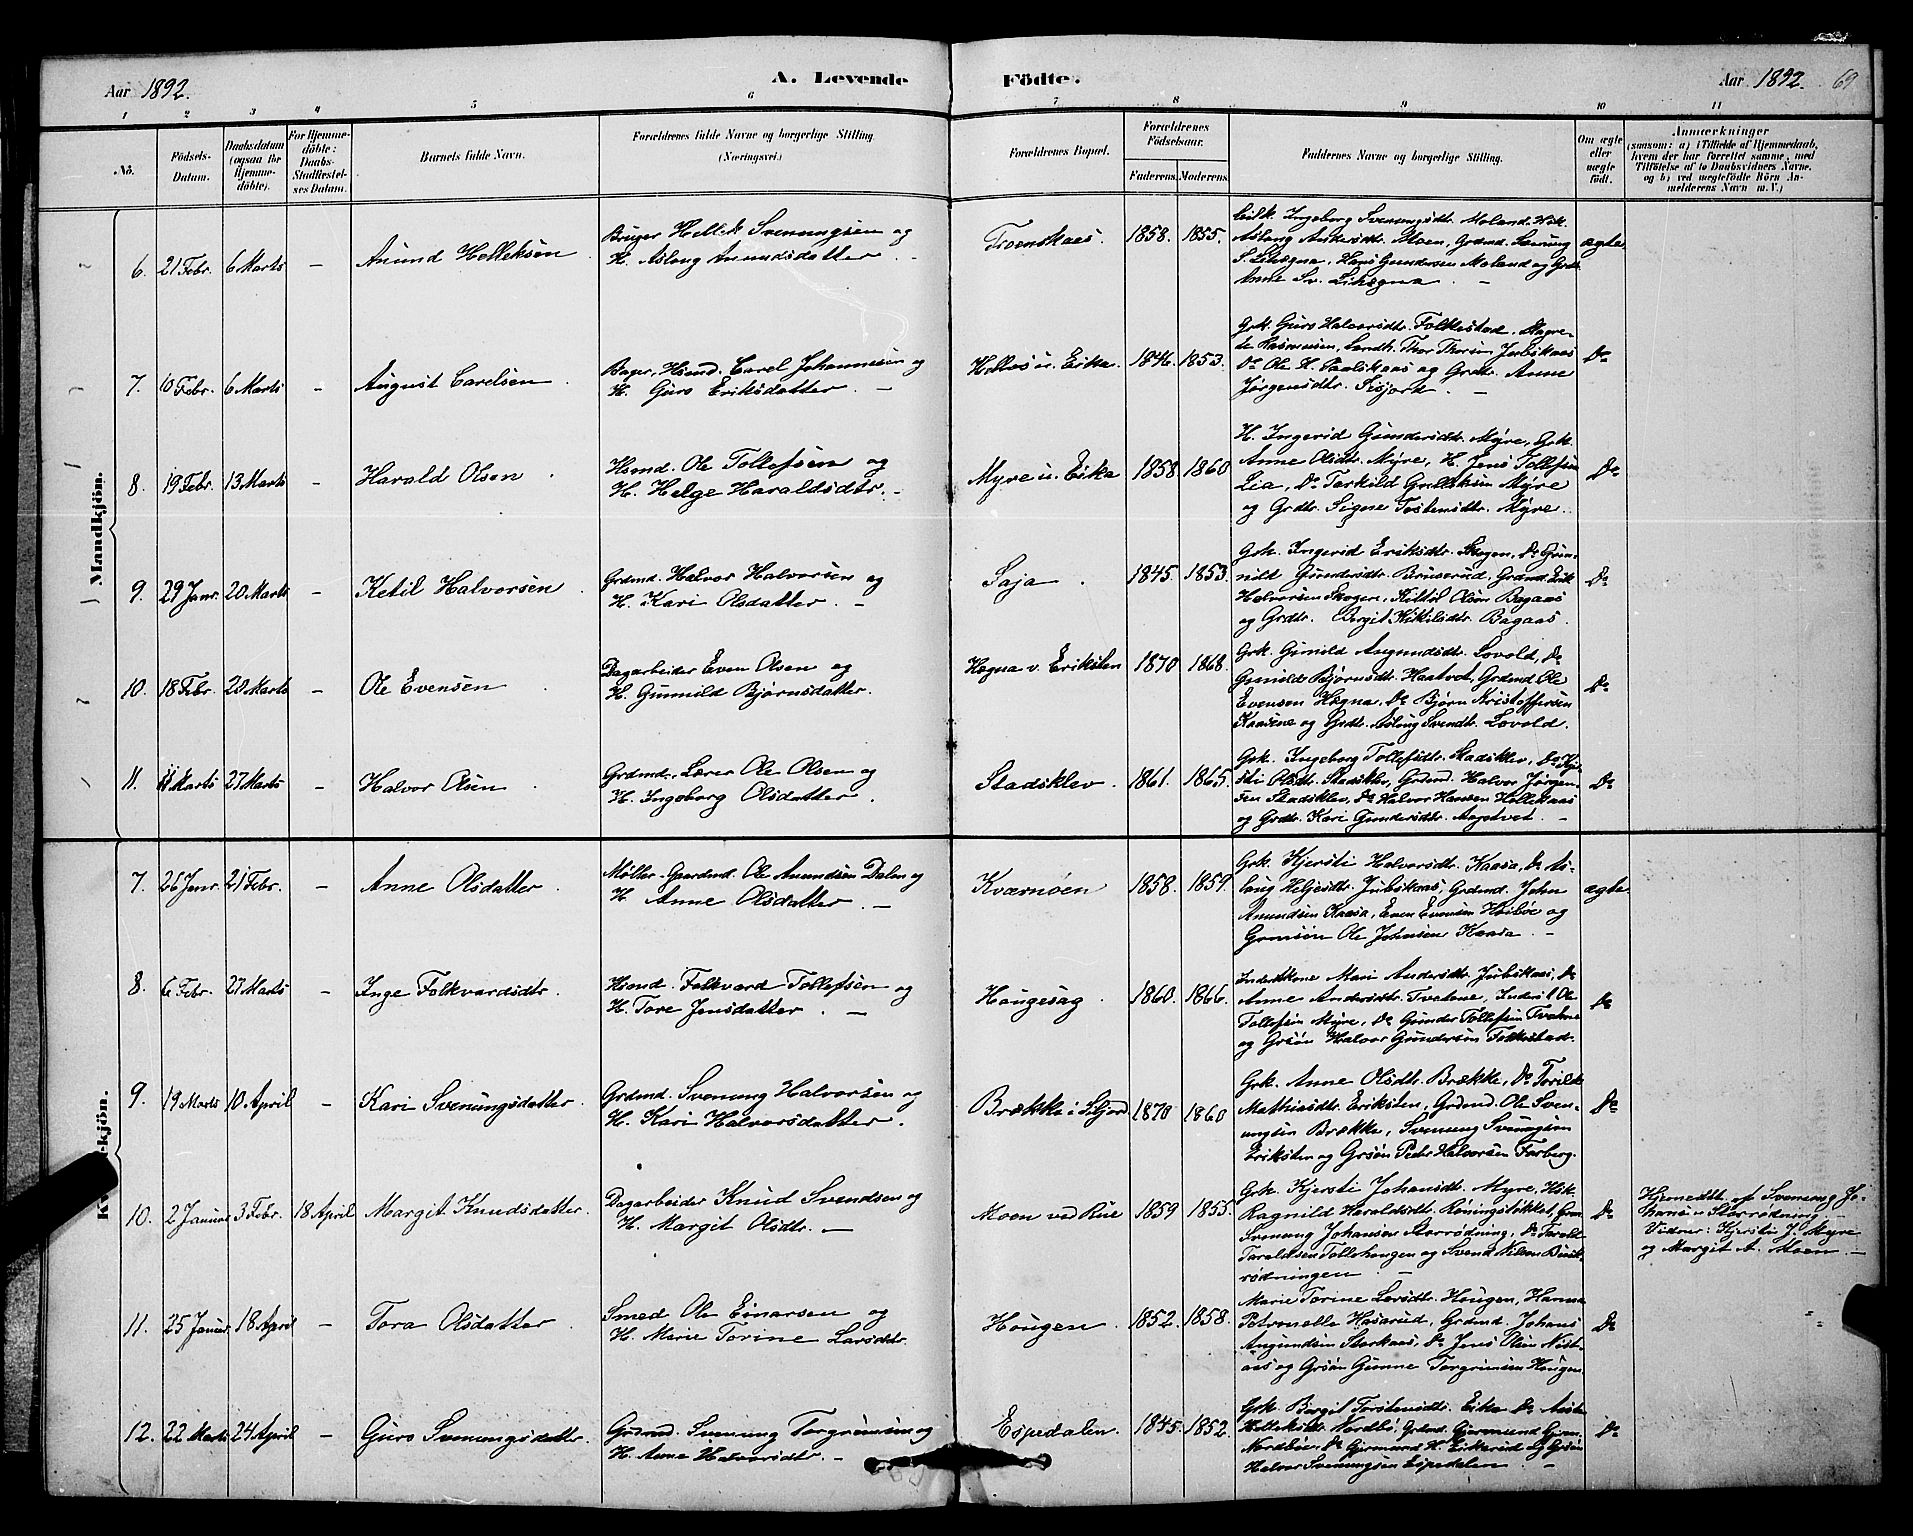 Aar 1892.
A. Levende
Födte.
Aar 1892. 69
1 2 3 4 5 6 7 8 9 10 11
No.
Födsels-Datum.
Daabsdatum (ogsaa for Hjemmedöbte).
For Hjemmedöbte: Daabs-Stadfæstelses Datum.
Barnets fulde Navn.
Forældrenes fulde Navne og borgerlige Stilling (Næringsvei.)
Forældrenes Bopæl.
Forældrenes Födselsaar.
Faderens. Moderens.
Faddernes Navne og borgerlige Stilling.
Om ægte eller uægte födt.
Anmærkninger
(saasom: a) i Tilfælde af Hjemmedaab,
hvem der har forrettet samme, med
Tilföielse af to Daabsvidners Navne.
og b) ved uægtefödte Börn An-
melderens Navn m. V.)
Mandkjön.
6. 21 Febr. 6 Marts – Anund Helleksen Bruger Hellek Svenungsen og
H. Aslaug Anundsdatter. –
Troenskaas. 1858. 1855.
Ingeborg Svenungsdtr. Moland, Hsk.
Aslaug Andersdtr. Moen, Grdmd.
Hans Gundersen Moland og Grdtr.
Anne Sv. –
ægte
7. 10 Febr. 6 Marts – August Carelsen. Bager, Hsmd. Carel Johannesen og
H. Guro Eriksdatter. –
Holtos u. Eika. 1846. 1853.
Grk. Guro Halvorsdtr. Folkestad,
Rasmussen, Landh. Thor Thorsen Jubskaas
Do Ole H. og Grdtr. Anne
Jørgensdtr. –
Do
8. 19 Febr. 13 Marts – Harald Olsen. Hsmd. Ole Tollefsen og
H. Helge Haraldsdtr. –
Myre u. Eika 1858 1860
H. Ingerid Gundersdtr. Myre, Grk.
Anne Olsdtr. Myre, H. Jens Tollefsen
Lia, Do Tarkild Gulleksen Myre
og Grdtr. Signe Tostensdtr. Myre.
Do
9. 29 Janr. 20 Marts – Ketil Halvorsen. Grdmd. Halvor Halvorsen og
H. Kari Olsdatter. –
Saja. 1845. 1853.
Grk. Ingerid Eriksdtr. Skogen, Do Gun-
nild Gundersdtr. Bruserud, Grdmd. Erik
Halvorsen Skogen, Kittil Olsen Bagaas
og Grdtr. Bergit Kittilsdtr. Bagaas.
Do
10. 18 Febr. 20 Marts – Ole Evensen. Dagarbeider Even Olsen og
H. Gunnild Bjørnsdatter.
Hegna v. Eriksten 1870 1868.
Grk. Gunild Aagundsdtr. Lovold, Do
Gunild Bjørnsdtr. Haatvet, Grdmd Ole
Evensen Hegna, Do Bjørn Kristoffersen
Kaasene og Grdtr. Aslaug Svendtr. Lovold.
Do
11. 11 Marts 27 Marts – Halvor Olsen. Grdmd., Lærer Ole Olsen og
H. Ingeborg Olsdatter.
Stadsklev. 1861. 1865.
Grk. Ingeborg Tollefsdtr. Stadsklev, Do Kjer-
sti Olsdtr. Stadsklev, Grdmd. Halvor Jørgen-
sen Stadsklev, Do Halvor Hansen Hellekaas
og Grdtr. Kari Gundersdtr. Aagetvet. –
Do
Kvindekjön.
7. 26 Janr. 21 Febr. – Anne Olsdatter. Møller – Gaardmd. Ole Anundsen Dalen og
H. Anne Olsdatter. –
Kværnøen 1858. 1859.
Grk. Kjersti Halvorsdtr. Kaasa, Do As-
laug Helgesdtr. Jubskaas, Grdmd. John
Anundsen Kaasa, Even Evensen Heibøe og
Grmsøn Ole Johnsen Kaasa. –
ægte.
8. 6 Febr. 27 Marts – Inge Folkvardsdtr. Hsmd. Folkvard Tollefsen og
H. Tore Jensdatter. –
Hougesag. 1860. 1866.
Inderstkone Mari Andersdtr. Jubskaas, Do
Anne Andersdtr. Tvetene, Inderst Ole
Tollefsen Myre, Do Gunder Tollefsen Tvetene
og Grsøn Halvor Gundersen Folkestad.
Do
9. 19 Marts 10 April – Kari Svenungsdatter. Grdmd. Svenung Halvorsen og
H. Kari Halvorsdatter.
Brække i Sljord 1870 1860
Grk. Anne Olsdtr. Brække, Do Torild
Mathiasdtr. Eriksten, Grdmd. Ole Sven-
ungsen Brække, Svenung Svenungsen
Eriksten og Grsøn Peder Halvorsen Forberg.
Do
10. 2 Januar 3 Febr. 18 April Margit Knudsdatter. Dagarbeider Knud Svendsen og
H. Margit Olsdtr. –
Moen ved Rue 1859 1855.
Grk. Kjersti Johansdtr. Myre, Hsk.
Ragnild Haraldsdtr. Røningstikket, Grm.
Svenung Johansen Storrødning, Do Tarald
Taraldsen Tollehougen og Svend Nilsen
rødningen –
Do
Hjemedøbt af Svenung Jo-
hansen Storrødning –
Vidner: Kjersti J. Myre
og Margit A. Moen –
11. 25 Januar 18 April – Tora Olsdatter. Smed Ole Einarsen og
H. Marie Torine Larsdtr.
Hougen. 1852. 1858.
Marie Torine Larsdtr. Hougen, Hanna
Petronelle Haarud, Grdmd. Johans
Aagundsen Storkaas, Do Jens Olsen
og Grsøn Gunne Torgrimsen Hougen
Do
12. 22 Marts 24 April – Guro Svenungsdatter. Grdmd. Svenung Torgrimsen og
H. Anne Halvorsdtr. –
Espedalen. 1845. 1852.
Grk. Bergit Torstensdtr. Eika Do
Helleksdtr. Nordbø, Grdmd. Gjermund
Nordbø, Do Gjermund H. Eikerud og Grsøn
Halvor Svenungsen Espedalen –
Do